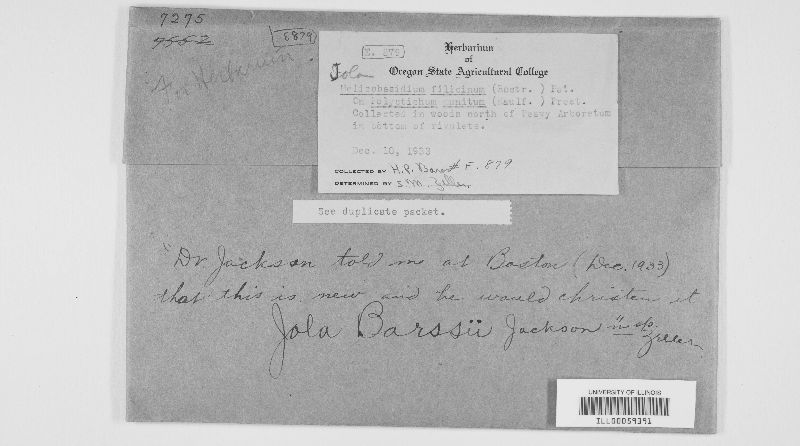 7275
9552
8879
For Herbarium
F. 879
Herbarium
of
Oregon State Agricultural College
Jola
Helicobasidium filicinum (Rostr. ) Pat.
On Polystichum munitum (Kaulf. ) Presl.
Collected in woods north of Peavy Arboretum
in bottom of rivulets.
Dec. 10, 1933
COLLECTED BY H.P. Barss # F. 879
DETERMINED BY S.M. Zeller
See duplicate packet.
"Dr Jackson told me at Boston (Dec. 1933)
that this is new and he would christen it
Jola Barssii Jackson n sp."
Zeller
UNIVERSITY OF ILLINOIS
ILL00059391